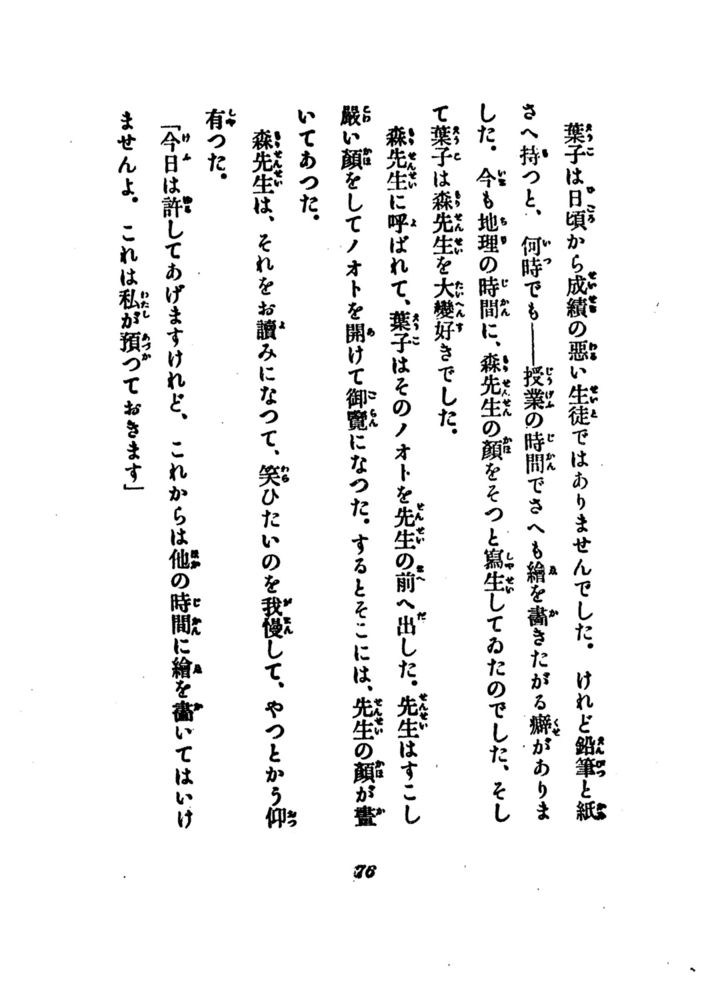 葉子は日頃から成績の悪い生徒ではありませんでした。けれど鉛筆と紙
さへ持つと、何時でも――授業の時間でさへも繪を畵きたがる癖がありま
した。今も地理の時間に、森先生の顔をそつと寫生してゐたのでした、そし
て葉子は森先生を大變好きでした。
森先生に呼ばれて、葉子はそのノオトを先生の前へ出した。先生はすこし
嚴い顔をしてノオトを開けて御覽になつた。するとそこには、先生の顔が畫
いてあつた。
森先生は、それをお讀みになつて、笑ひたいのを我慢して、やつとかう仰
有つた。
「今日は許してあげますけれど、これからは他の時間に繪を畵いてはいけ
ませんよ。これは私が預つておきます」
76